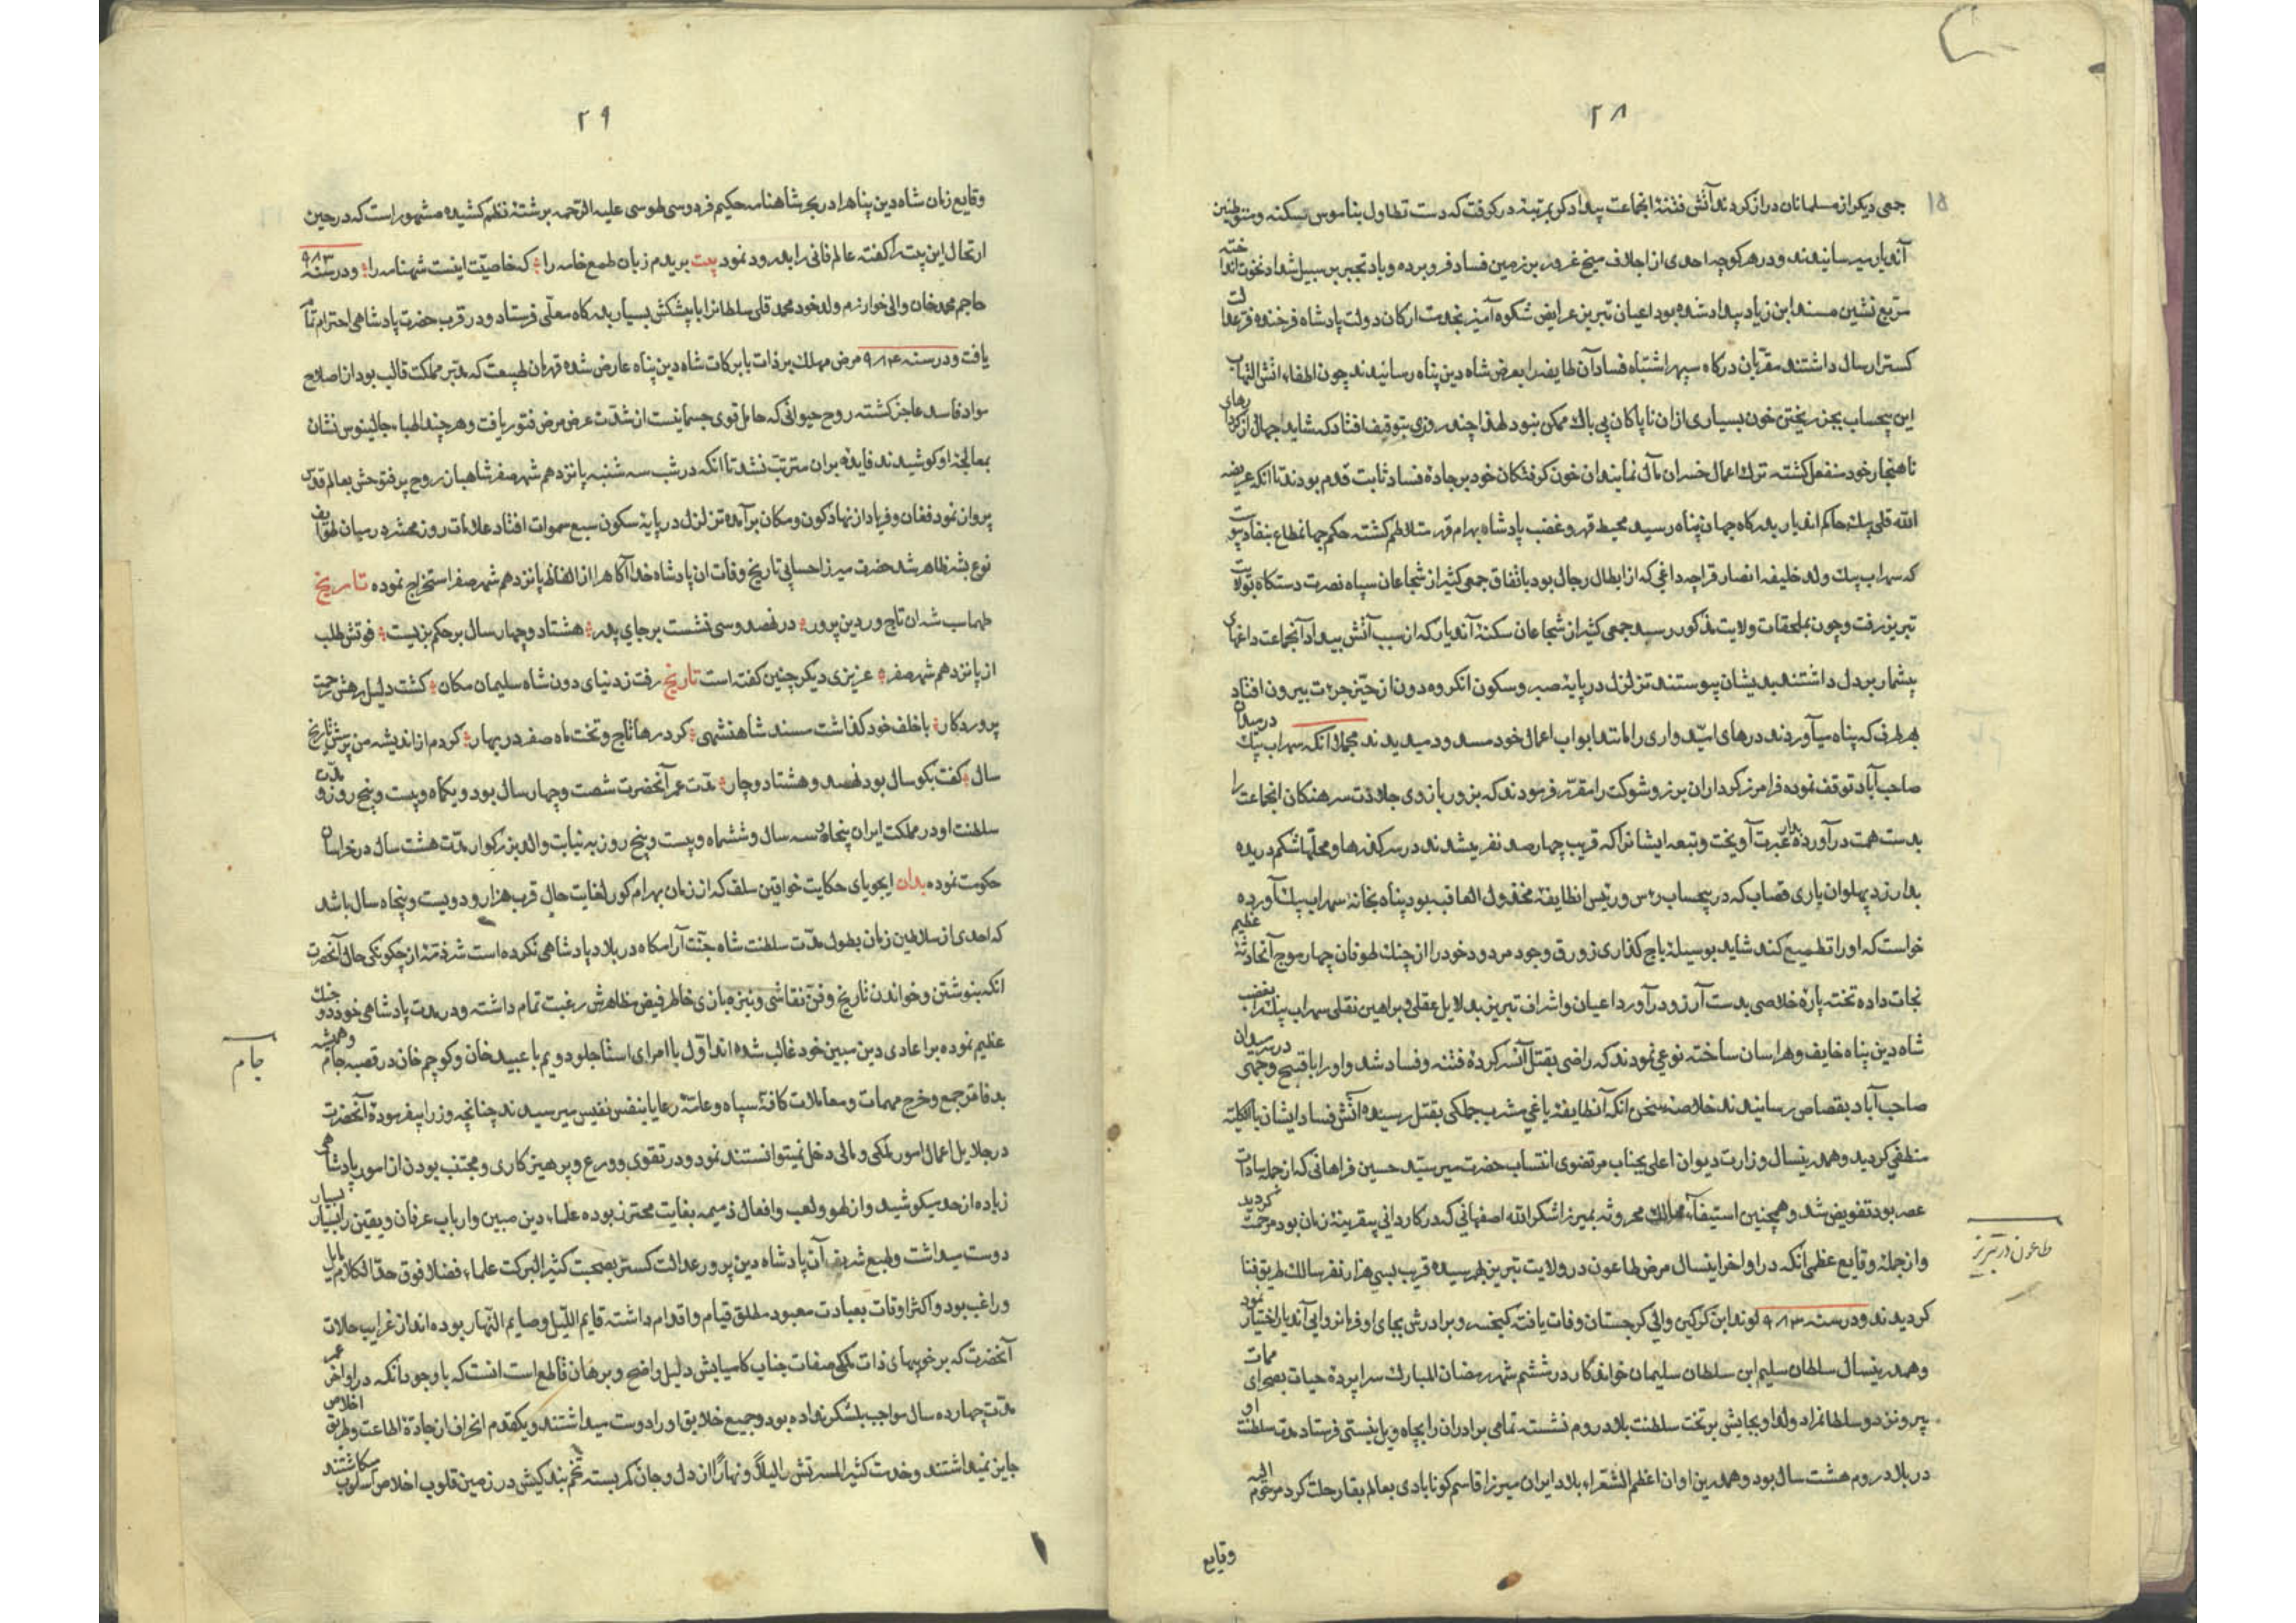 ۲۸
جمعی دیکر از مسلمانان دراز کردند آتش فتنهٔ انجماعت بیداد کر بمرتبهٔ در کرفت که دست تطاول بناموس سکنه و متوطنین
آندیار میرسانیدند و در هر کوچه احدی از اجلاف میخ غرور بر زمین فساد فرو برده و باد تجبر بر سبیل شداد نخوت انداخته
مربع نشین مسند ابن زیاد بیداد شده بود اعیان تبریز عرایض شکوه آمیز بخدمت ارکان دولت پادشاه فرخنده فر عدالت
کستر ارسال داشتند مقربان درکاه سپهر اشتباه فساد آن طایفه را بعرض شاه دین پناه رسانیدند چون اطفاء اتش التهاب
این بیحساب بجز ریختن خون بسیاری از ان ناپاکان بی باک ممکن نبود لهذا چند روزی بتوقیف افتاد که شاید اجهال از کردارهای
ناهنجار خود منفعل کشته ترک اعمال خسران مآل نمایند ان خون کرفتکان خود بر جادهٔ فساد ثابت قدم بودند تا انکه عریضه
الله قلی بیک حاکم اندیار بدرکاه جهان پناه رسید محیط قهر و غضب پادشاه بهرام قهر متلاطم کشته حکم جهانمطاع بنفاذ پیوست
که سهراب بیک ولد خلیفه انصار قراجه داغی که از ابطال رجال بود باتفاق جمعی کثیر از شجاعان سپاه نصرت دستکاه بولایت
تبریز رفت و چون بملحقات ولایت مذکور رسید جمعی کثیر از شجاعان سکنهٔ آندیار که از سبب آتش بیداد آنجماعت داغهای
بیشمار بر دل داشتند بدیشان پیوستند تزلزل در پایهٔ صبر و سکون انکروه دون از حیز جرءت بیرون افتاد
بهر طرف که پناه میآوردند درهای امیدواری را مانند ابواب اعمال خود مسدود میدیدند مجملا انکه سهراب بیک در میدان
صاحب آباد توقف نموده فرامرز کرداران برز و شوکت را مقرر فرمودند که بزور بازوی جلادت سرهنکان انجماعت را
بدست همت در آورده بدار عبرت آویخت و تبعه ایشانرا که قریب چهار صد نفر میشدند در سر کذرها و محلها شکم دریده
بدار زد پهلوان یاری قصاب که در بیحساب رءس و رئیس انطایفهٔ مخذول العاقبه بود پناه بخانهٔ سهراب بیک آورده
خواست که او را تطمیع کند شاید بوسیلهٔ باج کذاری زورق وجود مردود خود را از چنک طوفان چهار موج آنحادثهٔ عظیم
نجات داده تخته پارهٔ خلاصی بدست آرزو درآورد اعیان و اشراف تبریز بدلایل عقلی و براهین نقلی سهراب بیک را بغضب
شاه دین پناه خایف و هراسان ساخته نوعی نمودند که راضی بقتل آنسر کردهٔ فتنه و فساد شد و او را باقبح وجهی در میدان
صاحب آباد بقصاص رسانیدند خلاصهٔ سخن انکه آنطایفهٔ یاغی مشرب جملکی بقتل رسیده آتش فساد ایشان بالکلیّه
منطفی کردید و همدرینسال وزارت دیوان اعلی بجناب مرتضوی انتساب حضرت میر سید حسین فراهانی که از جمله سادات
عصر بود تفویض شد و همچنین استیفاء ممالک محروسه بمیرزا شکر الله اصفهانی که در کاردانی بیقرینهٔ زمان بود مرحمت کردید
و از جملهٔ وقایع عظمی انکه در اواخر اینسال مرض طاعون در ولایت تبریز بهم رسیده قریب بسی هزار نفر سالک طریق فنا
کردیدند و در سنه ۹۸۳ لوند ابن کرکین والی کرجستان وفات یافت کیخسرو برادرش بجای او فرمانروایی آندیار اختیار نمود
و همدرینسال سلطان سلیم ابن سلطان سلیمان خواندکار در ششم شهر رمضان المبارک سراپردهٔ حیات بصحرای ممات
بیرون زد و سلطانمراد ولد او بجایش بر تخت سلطنت بلاد روم نشست تمامی برادران را بچاه ویل نیستی فرستاد مدت سلطنت او
در بلاد روم هشت سال بود و همدرین اوان اعظم الشعراء بلاد ایران میرزا قاسم کونابادی بعالم بقا رحلت کرد مرحوم الیه
وقایع
طاعون در تبریز
۲۹
وقایع زمان شاه دین پناه را در بحر شاهنامه حکیم فردوسی طوسی علیه الرحمه برشتهٔ نظم کشیده مشهور است که در حین
ارتحال این بیت را کفته عالم فانی را بدرود نمود بیت بریدم زبان طمع خامه را که خاصیّت اینست شهنامه را و در سنه ۹۸۳
حاجم محمد خان والی خوارزم ولد خود محمد قلی سلطانرا با پیشکش بسیار بدرکاه معلی فرستاد و در قرب حضرت پادشاهی احترام تمام
یافت و در سنه ۹۸۴ مرض مهلک بر ذات با برکات شاه دین پناه عارض شده قهرمان طبیعت که مدبر مملکت قالب بود از اصلاح
مواد فاسد عاجز کشته روح حیوانی که حامل قوی جسمانیست از شدت عرض مرض فتور یافت و هر چند اطباء جالینوس نشان
بمعالجهٔ او کوشیدند فایدهٔ بران مترتب نشد تا انکه در شب سه شنبه پانزدهم شهر صفر شاهباز روح پر فتوحش بعالم قدس
پرواز نمود فغان و فریاد از نهاد کون و مکان برآمده تزلزل در پایهٔ سکون سبع سموات افتاد علامات روز محشر در میان طوایف
نوع بشر ظاهر شد حضرت میرزا حسابی تاریخ وفات ان پادشاه خدا آکاه را از الفاظ پانزدهم شهر صفر استخراج نموده تاریخ
طهماسب شه ان تاج ور دین پرور در نهصد و سی نشست بر جای پدر هشتاد و چهار سال بر حکم بزیست فوتش طلب
از پانزدهم شهر صفر عزیزی دیکر چنین کفته است تاریخ رفت ز دنیای دون شاه سلیمان مکان کشت دلیل رهش رحمت
پروردکار با خلف خود کذاشت مسند شاهنشهی کرد رها تاج و تخت ماه صفر در بهار کردم از اندیشه من پرسش تاریخ
سال کفت بکو سال بود نهصد و هشتاد و چار مدت عمر آنحضرت شصت و چهار سال بود و یکماه و بیست و پنج روز و مدت
سلطنت او در مملکت ایران پنجاه و سه سال و ششماه و بیست و پنج روز به نیابت والد بزرکوار مدت هشت سال در خراسان
حکومت نموده بدان ایجویای حکایت خواقین سلف که از زمان بهرام کور لغایت حال قرب هزار و دویست و پنجاه سال باشد
که احدی از سلاطین زمان بطول مدت سلطنت شاه جنت آرامکاه در بلاد پادشاهی نکرده است شرذمهٔ از چکونکی حال آنحضرت
انکه بنوشتن و خواندن تاریخ و فن نقاشی و نیزه بازی خاطر فیض مظاهرش رغبت تمام داشته و در مدت پادشاهی خود دو جنک
عظیم نموده بر اعادی دین مبین خود غالب شده اند اول با امرای استاجلو دویم با عبید خان و کوچم خان در قصبه جام و همیشه
بدفاتر جمع و خرج مهمات و معاملات کافهٔ سپاه و عامهٔ رعایا بنفس نفیس میرسیدند چنانچه وزرا بیفرمودهٔ آنحضرت
در جلایل اعمال امور ملکی و مالی دخل نمیتوانستند نمود و در تقوی و ورع و پرهیزکاری و مجتنب بودن از امور پادشاهی
زیاده از حد میکوشید و از لهو و لعب و افعال ذمیمه بغایت محترز بوده علماء دین مبین و ارباب عرفان و یقین را بسیار
دوست میداشت و طبع شریف آن پادشاه دین پرور عدالت کستر بصحبت کثیر البرکت علماء فضلا فوق حد الکلام مایل
و راغب بود و اکثر اوقات بعبادت معبود مطلق قیام و اقدام داشته قایم اللیل و صایم النهار بوده اند از غرایب حالات
آنحضرت که بر خوبیهای ذات ملکی صفات جناب کامیابش دلیل واضح و برهان قاطع است انست که با وجود انکه در اواخر عمر
مدت چهارده سال مواجب بلشکر نداده بود و جمیع خلایق او را دوست میداشتند و یکقدم انحراف از جادهٔ اطاعت و طریق اخلاص
جایز نمیداشتند و خدمت کثیر المسرتش را لیلاً و نهاراً از دل و جان کمر بسته تخم بندکیش در زمین قلوب اخلاص اسلوب میکاشتند
جام